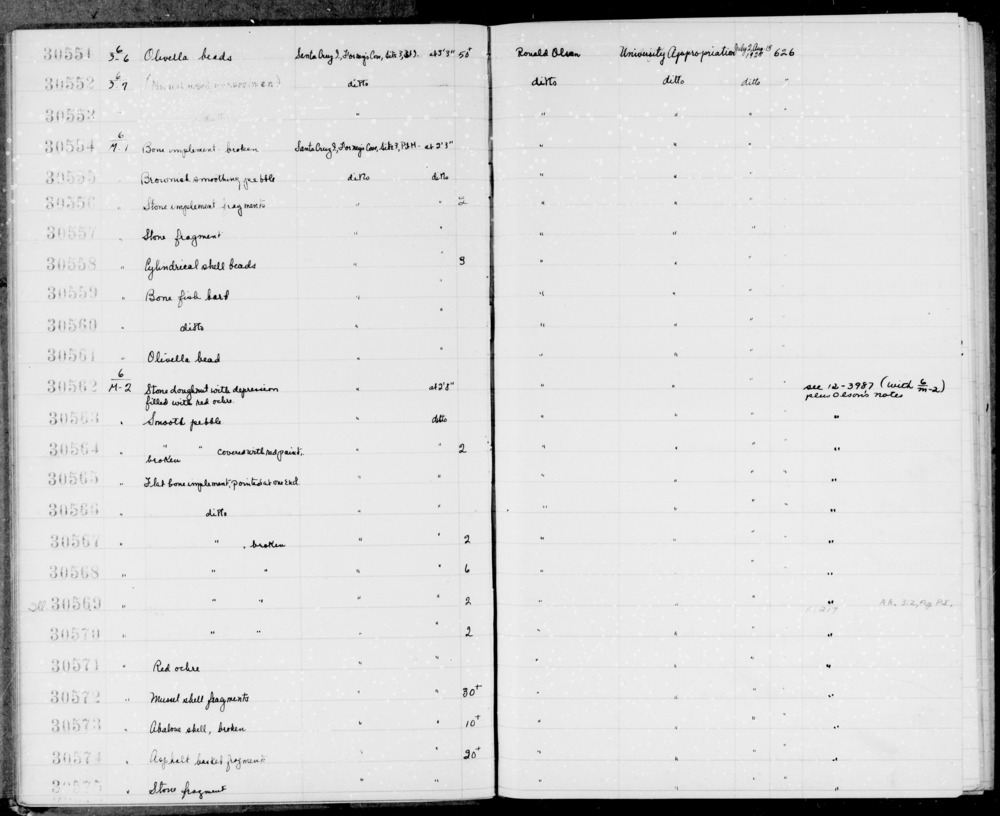 30551 6/3-6 Olivella beads Santa Cruz 3, Forney's Cove, Site 3, at 3'3" 50+ Ronald Olson University Appropriation 1928 626
30552 6/3-7 ditto ditto ditto ditto "
30553 ditto " " " " "
30554 6/M-1 Bone implement broken Santa Cruz 3, Forney's Cove, Site 3, Pit M- at 2'3" " " " "
30555 " Brownish smoothing pebble ditto ditto " " " "
30556 " Stone implement fragments " " 2 " " " "
30557 " Stone fragment " " " " " "
30558 " Cylindrical shell beads " " 3 " " " "
30559 " Bone fish barb " " " " " "
30560 " ditto " " " " " "
30561 " Olivella bead " " " " " "
30562 6/M-2 Stone doughnut with depression " at 2'8" " " " " see 12-3987 (with 6/m-2)
filled with red ochre plus Olson's notes
30563 " Smooth pebble " ditto " " " " "
30564 " " " covered with red paint, " " 2 " " " " "
broken
30565 " Flat bone implement, pointed at one end " " " " " " "
30566 " ditto " " " " " " "
30567 " " , broken " " 2 " " " " "
30568 " " " " " 6 " " " " "
30569 " " " " " 2 " " " " "
30570 " " " " " 2 " " " " "
30571 " Red ochre " " " " " " "
30572 " Mussel shell fragments " " 30+ " " " " "
30573 " Abalone shell, broken " " 10+ " " " " "
30574 " Asphalt basket fragments " " 20+ " " " " "
30575 " Stone fragment " " " " " " "